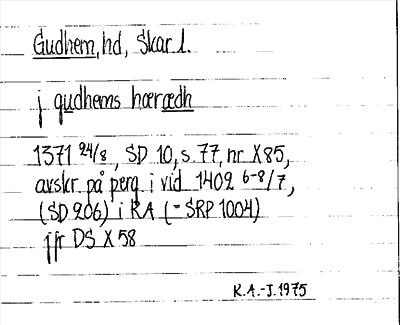 Gudhem, hd, Skar. l.
j gudhems hærædh
1371 24/8, SD 10, s. 77, nr X85,
avskr. på perg. i vid 1402 6-8/7,
(SD 206) i RA (=SRP 1004)
jfr DS X 58
R.A.-J. 1975